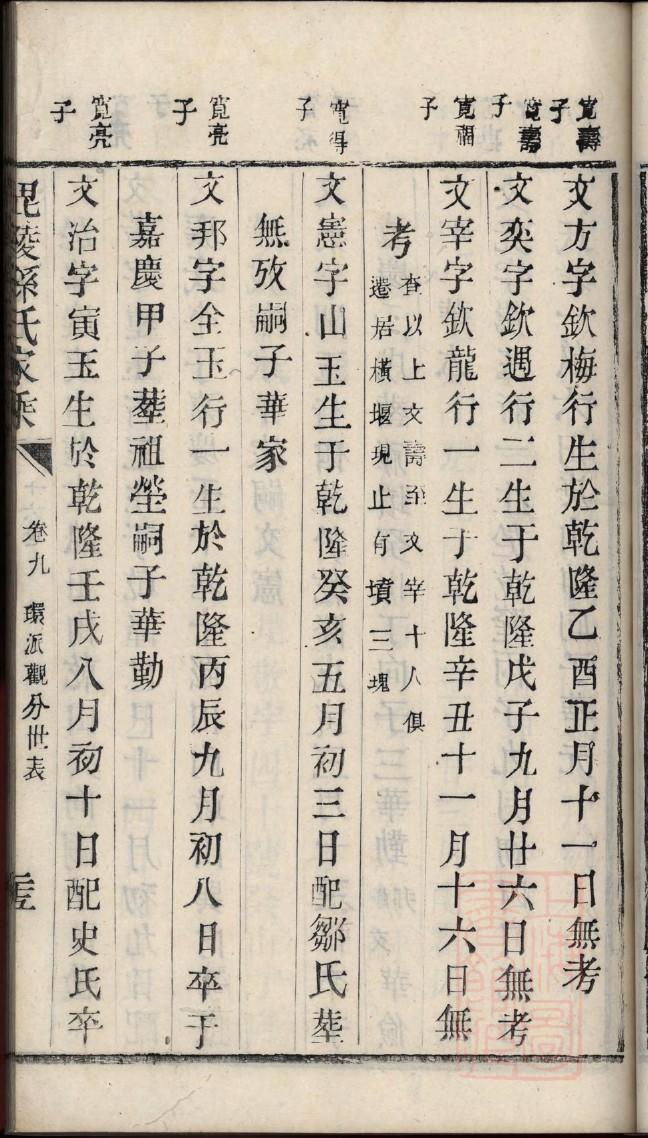 寬壽子
文方字欽梅行生於乾隆乙酉正月十一日無考
寬壽子
文奕字欽遇行二生于乾隆戊子九月廿六日無考
寬福子
文宰字欽龍行一生于乾隆辛丑十一月十六日無
考
查以上文壽至文宰十人俱
遷居橫堰現止有墳三塊
寬得子
文憲字山玉生于乾隆癸亥五月初三日配鄒氏葬
無攷嗣子華家
寬亮子
文邦字全玉行一生於乾隆丙辰九月初八日卒于
嘉慶甲子葬祖塋嗣子華勤
寬亮子
文治字寅玉生於乾隆壬戌八月初十日配史氏卒
毘陵孫氏家乘
卷九 環派觀分世表